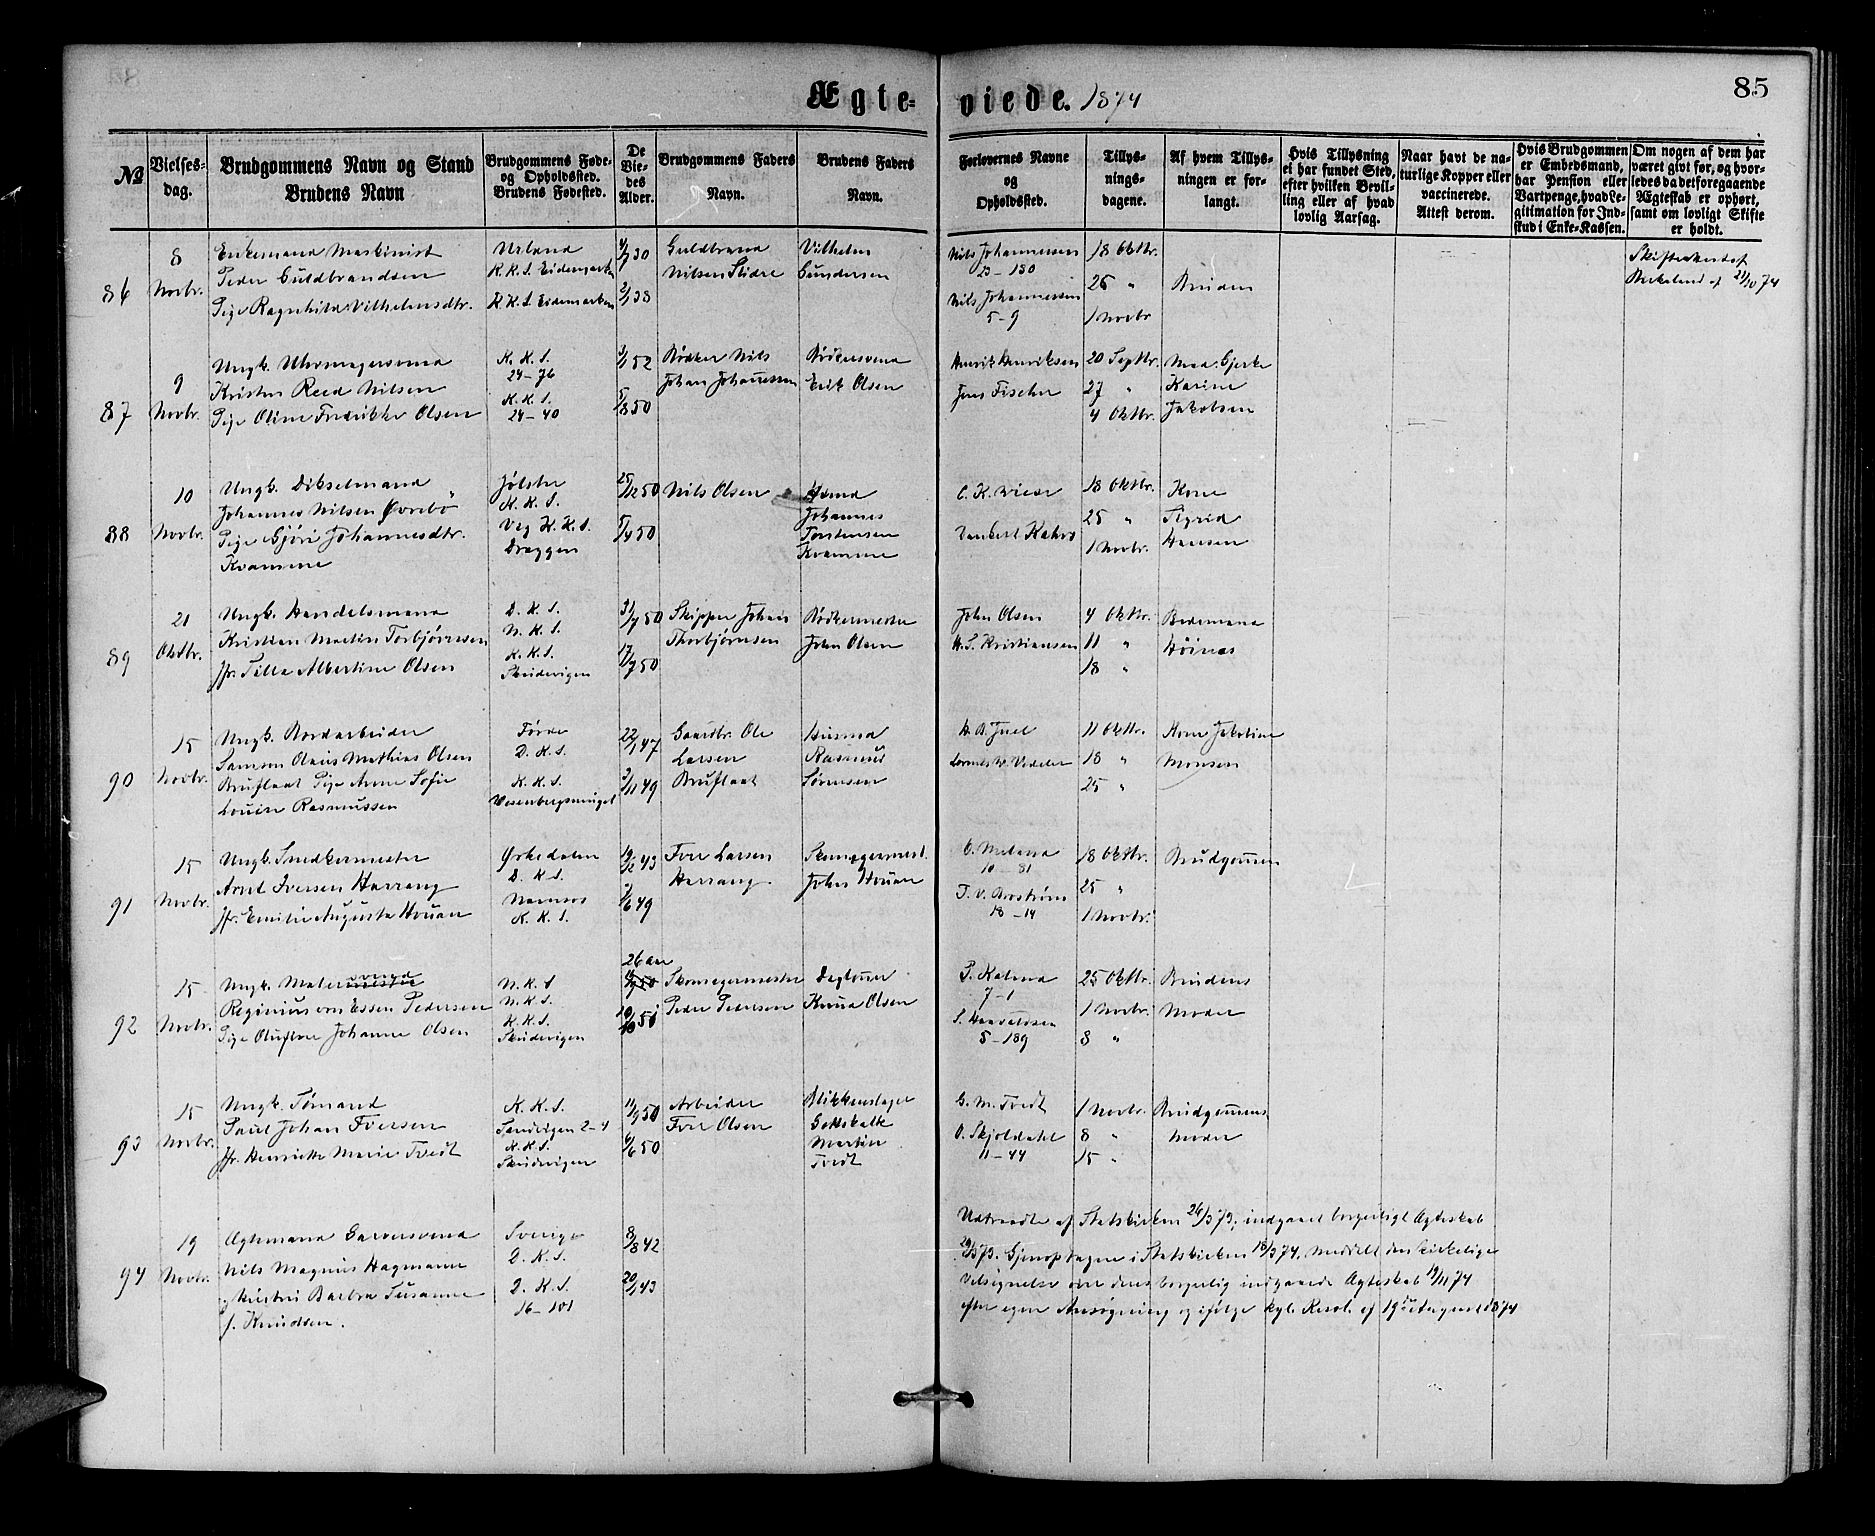 Ægte-
viede. 1874
85
№
Vielses-
dag.
Brudgommens Navn og Stand
Brudens Navn
Brudgommens Føde-
og Opholdssted.
Brudens Fødested.
De
Vie-
des
Alder.
Brudgommens Faders
Navn.
Brudens Faders
Navn.
Forlovernes Navne
og
Opholdssted.
Tillys-
nings-
dagene.
Af hvem Tillys-
ningen er for-
langt.
Hvis Tillysning
ei har fundet Sted,
efter hvilken Bevil-
ling eller af hvad
lovlig Aarsag.
Naar havt de na-
turlige Kopper eller
vaccinerede.
Attest derom.
Hvis Brudgommen
er Embedsmand,
har Pension eller
Vartpenge, hvad Le-
gitimation for Ind-
skud i Enke-Kassen.
Om nogen af dem har
været givt før, og hvor-
ledes da det foregaaende
Ægteskab er ophørt,
samt om lovligt Skifte
er holdt.
86
8
Novbr.
Enkemand Maskinist
Peder Guldbrandsen
Pige Ragnhild Vilhelmsdtr.
Urland
K.K.S. Eidemarken
K.K.S. Eidemarken
30
38
Guldbrand
Nilsen Slidre
Vilhelm
Gundersen
Nils Johannesen
23-130
Nils Johannessen
5-9
18 Oktbr.
25 "
1 Novbr
Bruden
Skifteattest af
87
9
Novbr.
Ungk. Uhrmagersvend
Kristen Reed Nilsen
Pige Oline Fredrikke Olsen
K. K. S.
24-76
K. K. S.
24-40
3/1 52
50
Bødker Nils
Johan Johannessen
Bødkersvend
Erik Olsen
Henrik Henriksen
Jens Fischer
20 Septbr.
27 "
4 Oktbr.
Mad. Gjerke
Karine
Jakobsen
88
10
Novbr.
Ungk. Dikselmand
Johannes Nilsen Øvrebø
Pige Gjøri Johannesdtr.
Kvamme
Jølster
K. K. S.
Veg K. K. S.
Dreggen
25/12 50
5/4 50
Nils Olsen
Johannes
Torstensen
Kvamme
C. K. Wiese
18 Oktbr.
25 "
1 Novbr.
Kone
Sigrid
Hansen
89
21
Oktbr.
Ungk. Handelsmand
Kristian Martin Torbjørnsen
Jfr. Silla Albertine Olsen
D. K. S.
N. K. S.
K. K. S.
Skudevigen
31/7 50
17/7 50
Skipper Johan
Thorbjørnsen
Bødkermester
John Olsen
John Olsen
H. S. Kristiansen
4 Oktbr.
11 "
18 "
Bedemand
Høines
90
15
Novbr.
Ungk. Bordarbeider
Samson Olaus Mathias Olsen
Bruflaat Pige Anne Sofie
Louise Rasmussen
Førde
D. K. S.
K. K. S.
Wesenbergsminget
22/1 47
3/11 49
Gaardbr. Ole
Larsen
Bruflaat
Husmd
Rasmus
Sørensen
H. B. Juel
11 Oktbr.
18 "
25 "
Kone Jakobine
Monsen
91
15
Novbr.
Ungk. Snedkermester
Arnt Iversen Harrang
Jfr. Emilie Augusta Hovan
Ørkedalen
D. K. S.
Namsos
K. K. S.
19/12 43
6 49
Iver Larsen
Harrang.
John Hovan
10-81
18-14
18 Oktbr.
25 "
1 Novbr.
Brudgommen
92
15
Novbr.
Ungk. Malermester
svend
Reginius von Essen Pedersen
Pige Olufine Johanne Olsen
N. K. S
N. K. S.
K. K. S.
Skudevigen
26 aar
10/10 50
Skomagermester
Peder Pedersen
Dagleier
Knud Olsen
7-1
5-189
25 Oktbr.
1 Novbr.
8 "
Brudens
Moder
93
15
Novbr.
Ungk. Sømand
Paul Johan Iversen
Jfr. Henriette Marie Tvedt
K. K. S.
Sandvigen 2-4
K. K. S.
Skudevigen
11/9 50
6/6 50
Arbeider
Iver Olsen
Blikkenslager
Gottskalk
Martin
Tvedt
G. M. Tvedt
O. Skjoldahl
11-44
1 Novbr.
8 "
15 "
Brudgommens
Moder
94
19
Novbr.
Ægtemand Garversvend
Nils Magnus Hagmann
og Hustru Barbra Susanne
f. Knudsen.
Sverige
D. K. S.
D. K. S.
16-101
8/8 42
20/1 43
Udtraadte af Statskirken 26/3 73, indgaaet borgerligt Ægteskab
29/3 73. Gjenoptagne i Statskirken 18/3 74, meddelt den kirkelige
Velsignelse over deres borgerlig indgaaede Ægteskab 19/11 74
efter egen Ansøgning og ifølge kgl. Resol. af 19de August 1874